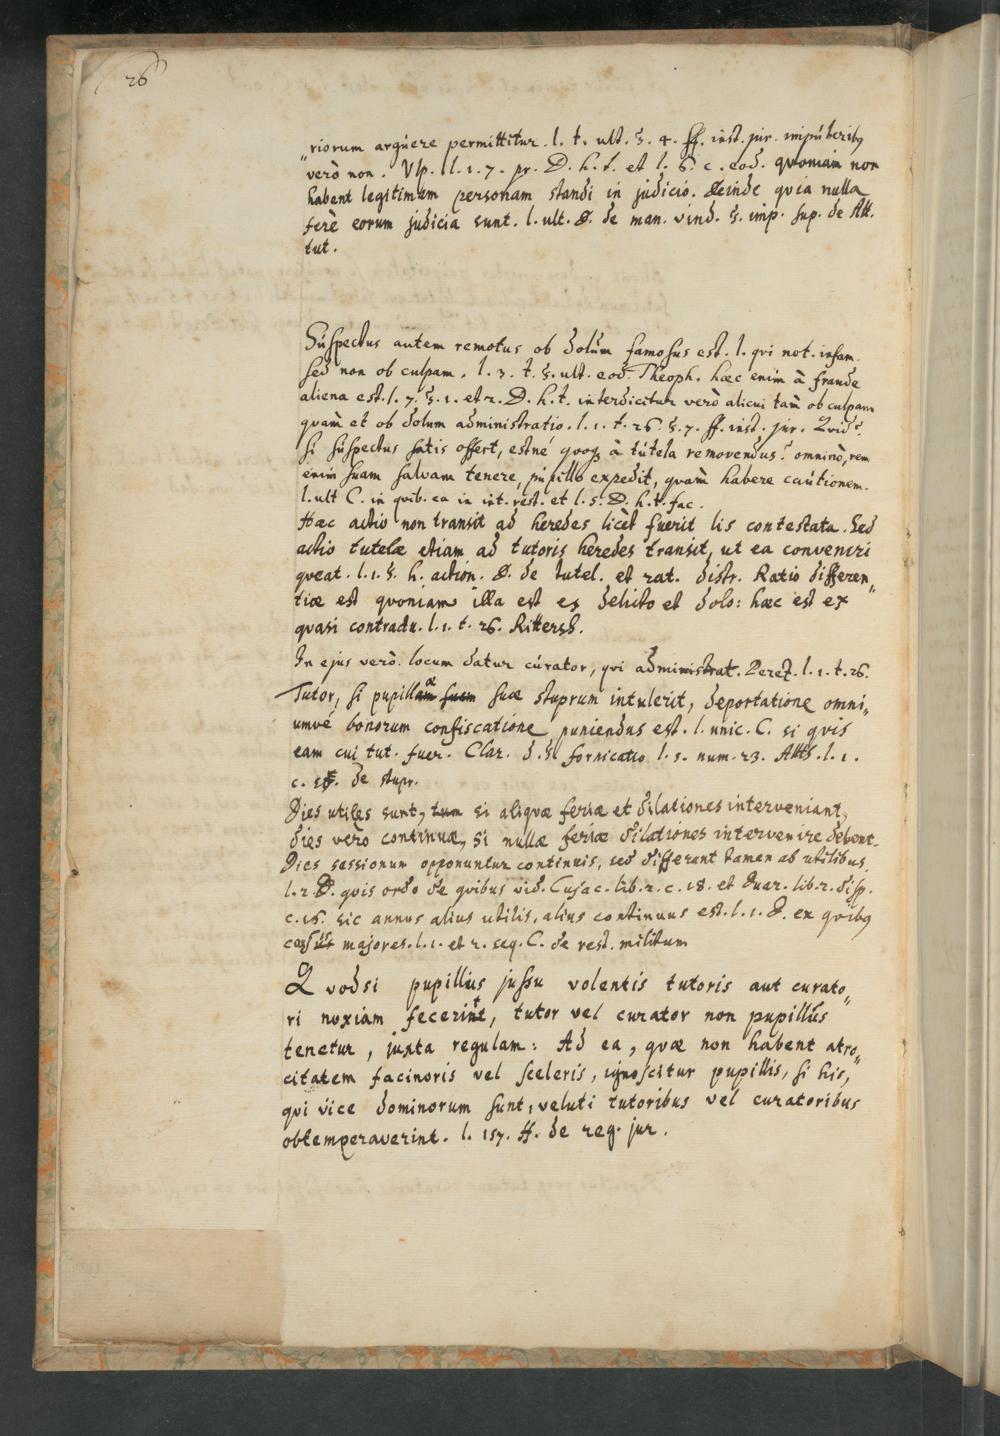 26
„riorum argúere permittitur. l. t. ult. §. 4. ff. inst. jur. impúberibꝫ
verò non. Vlp. l. 1. 7. pr. D. h. t. et l. 6. c. eod. quoniam non
habent legitimam personam standi in judicio. Deinde qvia nulla
ferè eorum judicia sunt. l. ult. D. de man. vind. §. imp. sup. de Att.
tut.
Súspectus autem remotus ob dolúm famosus est. l. qvi not. infam.
sed non ob culpam. l. 3. t. §. ult. eod. Theoph. hæc enim à fraude
aliena est. l. 7. §. 1. et 2. D. h. t. interdicitur verò alicui tam̀ ob culpam
qvam̀ et ob dolum administratio. l. 1. t. 26. §. 7. ff. inst. jur. Qvid?
si súspectus satis offert, estné qvoqꝫ à tútela removendus? omninò, rem
enim suam salvam tenere, púpillo expedit, qvam̀ habere caútionem.
l. ult C. in qvib. ca in int. rest. et l. 5. D. h. t. fac.
Hæc actio non transit ad heredes licèt fuerit lis contestata. Sed
actio tutelæ etiam ad tutoris heredes transit, ut ea conveniri
qveat. l. 1. §. h. action. D. de tutel. et rat. distr. Ratio differen„
tiæ est qvoniam illa est ex delicto et dolo: hæc est ex
qvasi contractu. l. 1. t. 26. Rittersh.
In ejus verò locum datur cúrator, qvi administrat. Perez. l. 1. t. 26.
Tutor, si pupillæ suæ stuprum intulerit, deportatione omni„
umvé bonorum confiscatione puniendus est. l. unic. C. si qvis
eam cui tut. fuer. Clar. d. § fornicatio l. 5. num. 23. Atth. l. 1.
c. de stupr.
Dies utiles sunt, si aliqvæ feriæ et dilationes interveniant,
dies vero continuæ, si nullæ feriæ dilationes intervenire debent.
Dies sessionum opponuntur continuis, sed differant tamen ab utilibus.
l. 2 D. qvis ordo de qvibus vid. Cujac. lib. 2. c. 18. et Duar. lib. 2. disp.
c. 16. sic annus alius utilis, alius continuus est. l. 1. D. ex qvibꝫ
majores. l. 1. et 2. seq. C. de rest. militum
Qvodsi pupillus jussu volentis tutoris aut curato„
ri noxiam fecerit, tutor vel curator non pupillús
tenetur, juxta regulam: Ad ea, qvæ non habent atro„
citatem facinoris vel sceleris, ignoscitur pupillis, si his,
qvi vice dominorum sunt, veluti tutoribus vel curatoribus
obtemperaverint. l. 157. ff. de reg. jur.